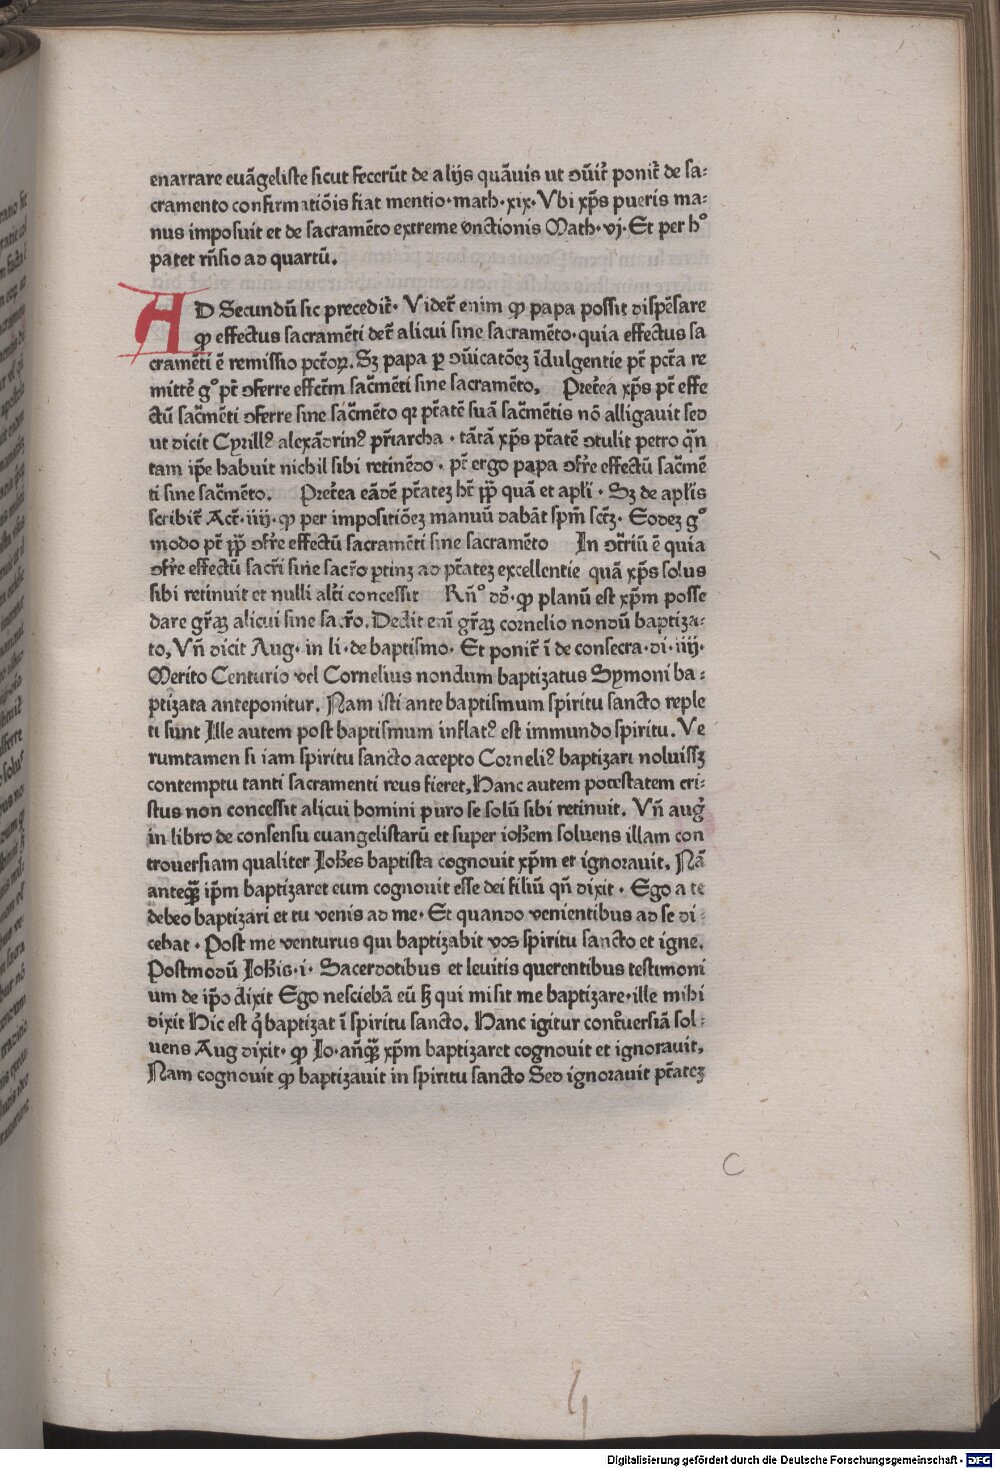 enarrare euāgeliste sicut fecerūt de alijs quāuis ut ↄūit᷑ ponit᷑ de sa⸗
cramento confirmatiōis fiat mentio·math·xix·Vbi xp̄s pueris ma⸗
nus imposuit et de sacramēto extreme vnctionis Math·vj·Et per hº
patet rn̄sio ad quartū.
AD Secundū sic precedit᷑· Videt᷑ enim ꝙ papa possit dispēsare
ꝙ effectus sacramēti det᷑ alicui sine sacramēto·quia effectus sa
cramēti ē remissio pctōꝝ. Sꝫ papa ꝑ ↄūicatōeꝫ īdulgentie pt̄ pctā re
mitte᷑ gº pt̄ ↄferre effctm̄ sac̄mēti sine sacramēto. Pret᷑ea xp̄s pt̄ effe
ctū sac̄mēti ↄferre sine sac̄mēto qꝛ pt̄atē suā sac̄mētis nō alligauit sed
ut dicit Cyrillꝰ alexādrinꝰ pr̄iarcha · tātā xp̄s pt̄atē ↄtulit petro qn̄
tam ip̄e habuit nichil sibi retinēdo · pt̄ ergo papa ↄfr̄e effectū sac̄mē
ti sine sac̄mēto. Pret᷑ea eādē pt̄ateꝫ ht̄ pp̄ quā et apl̄i · Sꝫ de apl̄is
scribit᷑ Act᷑·iiij·ꝙ per impositiōeꝫ manuū dabāt sp̄m sct̄ꝫ· Eodeꝫ gº
modo pt̄ pp̄ ↄfr̄e effectū sacramēti sine sacramēto In ↄt᷑riū ē quia
ↄfr̄e effectū sacr̄i sine sacr̄o ꝑtinꝫ ad pt̄ateꝫ excellentie quā xp̄s solus
sibi retinuit et nulli alt᷑i concessit Rn̄º dō·ꝙ planū est xp̄m posse
dare gr̄aꝫ alicui sine sacr̄o. Dedit eni᷑ gr̄aꝫ cornelio nondū baptiza⸗
to, Vn̄ dicit Aug· in li·de baptismo· Et ponit᷑ ī de consecra·di·iiij·
Merito Centurio vel Cornelius nondum baptizatus Symoni ba⸗
ptizata anteponitur. Nam isti ante baptismum spiritu sancto reple
ti sunt Ille autem post baptismum inflatꝰ est immundo spiritu. Ve
rumtamen si iam spiritu sancto accepto Corneliꝰ baptizari noluissꝫ
contemptu tanti sacramenti reus fieret, Hanc autem potestatem cri⸗
stus non concessit alicui homini puro se solū sibi retinuit. Vn̄ aug᷑
in libro de consensu euangelistarū et super ioh̄em soluens illam con
trouersiam qualiter Joh̄es baptista cognouit xp̄m et ignorauit. Nā
anteqꝫ̄ ip̄m baptizaret eum cognouit esse dei filiū qn̄ dixit · Ego a te
debeo baptizari et tu venis ad me· Et quando venientibus ad se di⸗
cebat · Post me venturus qui baptizabit vos spiritu sancto et igne.
Postmodū Joh̄is·i· Sacerdotibus et leuitis querentibus testimoni
um de ip̄o dixit Ego nesciebā eū sꝫ qui misit me baptizare·ille mihi
dixit Hic est q᷑ baptizat ī spiritu sancto. Hanc igitur cont᷑uersiā sol⸗
uens Aug dixit· ꝙ Jo·an̄qꝫ̄ xp̄m baptizaret cognouit et ignorauit,
Nam cognouit ꝙ baptizauit in spiritu sancto Sed ignorauit pt̄ateꝫ
C
Digitalisierung gefördert durch die Deutsche Forschungsgemeinschaft - DFG